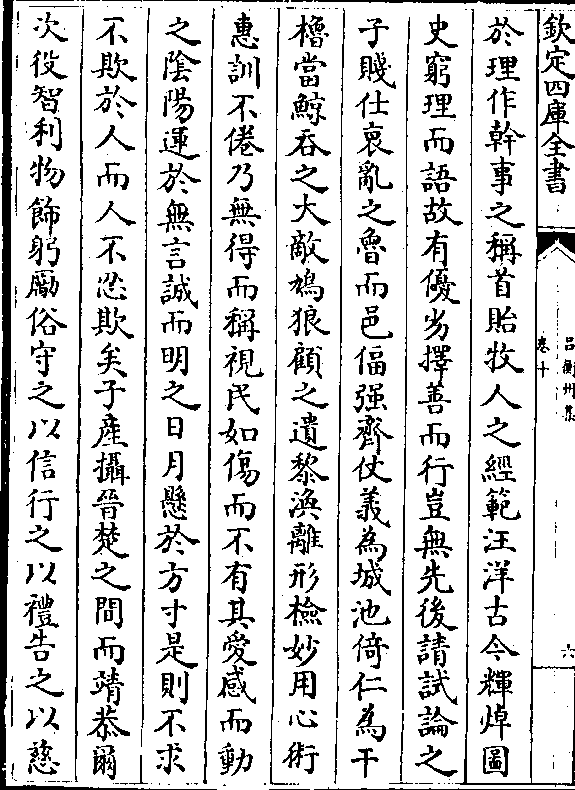 欽定四庫全書
呂衡州集
卷十
六
於理作幹事之稱首貽牧人之經範汪洋古今輝焯圖
史窮理而語故有優劣擇善而行豈無先後請試論之
子賤仕衰亂之魯而邑偪强齊仗義為城池倚仁為干
櫓當鯨吞之大敵鳩狼顧之遺黎渙離形檢妙用心術
惠訓不倦乃無得而稱視民如傷而不有其愛感而動
之陰陽運於無言誠而明之日月懸於方寸是則不求
不欺於人而人不忍欺矣子產攝晉楚之間而靖恭爾
次役智利物飾躬勵俗守之以信行之以禮告之以慈